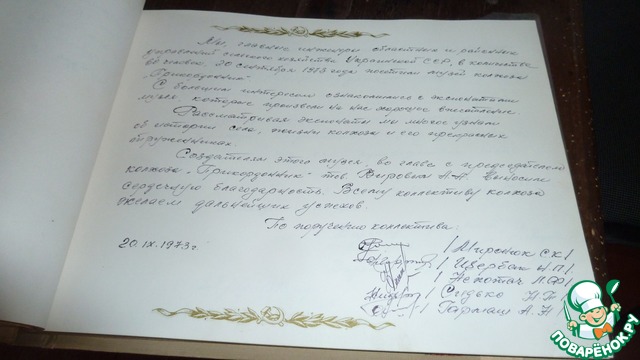 Мы, главные инженеры областных и районных
управлений сельского хозяйства Украинской ССР, в количестве
человек, 20 сентября 1973 года посетили музей колхоза
"Прикордонник"
С большим интересом ознакомились с экспонатами
музея, которые произвели на нас хорошее впечатление.
Рассматривая экспонаты мы много узнали
об истории села, жизни колхоза и его прекрасных
тружениках.
Создателям этого музея, во главе с председателем
колхоза "Прикордонник" тов. А.А. выносим
сердечную благодарность. Всему коллективу колхоза
желаем дальнейших успехов.
По поручению коллектива:
20.IX.1973 г.
/Миронюк С.К/
/Цвербан Н.П/
/
/Сидько А.П/
/Гармаш А.Н/
ПОВАРЁНОК.РУ